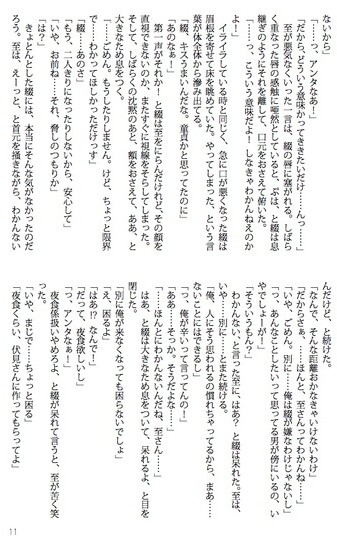 ないから」
「っ……、アンタなあ!」
「だから、どういう意味かってききたいだけ……んっ」
至が悪気なくいった一言は、綴の唇に塞がれる。しばら
く重なった唇の感触に唖然としていると、ぷは、と綴は息
継ぎのようにそれを離して、口元をおさえて俯いた。
「……っ、こういう意味だよ! しなきゃわかんねえのか
よ!」
イライラしている時と同じく、急に口が悪くなった綴は
眉根を寄せて床を眺めていた。やってしまった、という言
葉が体全体から滲み出てる。
「綴、キスうまいんだな。童貞かと思ってたのに」
「あのなぁー!」
第一声がそれか! と綴は至をにらんだけれど、その顔を
直視できないのか、またすぐに視線をそらしてしまった。
そして、しばらくの沈黙のあと、額をおさえて、ああ、と
大きなため息をつく。
「……ごめん。もうしたりしません。けど、ちょっと限界
で……わかってほしかっただけっす」
「綴……あのさ」
「もう、二人きりになったりしないから、安心して」
「いや、お前ね……それ、脅しのつもりか」
「は?」
きょとんとした綴には、本当にそんな気がなかったのだ
ろう。至は、えーっと、と首元を掻きながら、わかんない
んだけど、と続けた。
「なんで、そんな距離おかなきゃいけないわけ」
「だからさぁ……ほんと、至さんってわかんね……」
「いや、ごめん。別に……俺は綴が嫌なわけじゃないし」
「っ、あんなことしたいって思ってる男が傍にいるの、い
やでしょーが!」
「そういうもん?」
わかんない、と言った至に、はあ? と綴は呆れた。至は、
いや、別に……とまた続ける。
「俺、人にそう思われるの慣れちゃってるから、まあ……
ないことにはできるし」
「っ、俺が辛いって言ってんの!」
「ああ……そっか。そうだよな……」
「……ほんとにわかんないんだね、至さん……」
はあ、と綴は大きなため息をついて、呆れるよ、と目を
閉じた。
「別に俺が来なくなっても困らないでしょ」
「え、困るよ」
「はあ!? なんで!」
「だって、夜食欲しいし」
「っ、アンタなぁ!」
夜食係扱いやめろよ、と綴が呆れて言うと、至が苦く笑
った。
「いや、まじで……ちょっと困る」
「夜食くらい、伏見さんに作ってもらってよ」
11